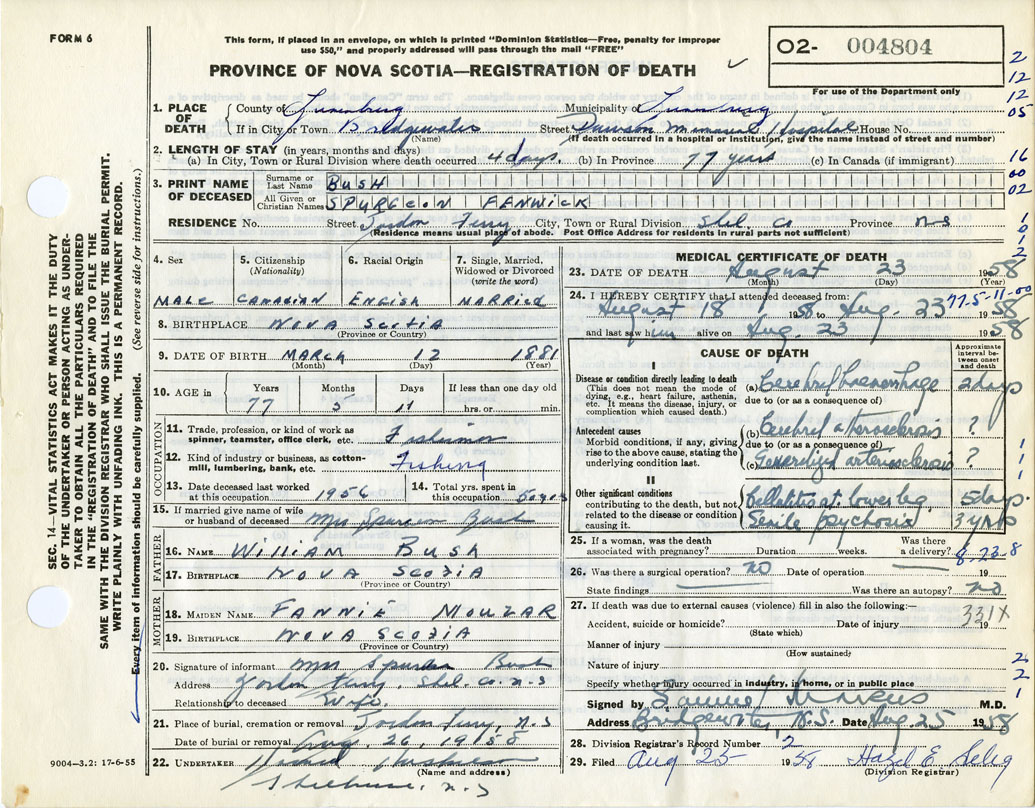 FORM 6
This form, if placed in an envelope, on which is printed "Dominion Statistics—Free, penalty for improper
use $50," and properly addressed will pass through the mail "FREE"
PROVINCE OF NOVA SCOTIA—REGISTRATION OF DEATH
O2- 004804
For use of the Department only
2
12
12
05
16
00
02
1
0
1
2
1. PLACE OF DEATH
County of Lunenburg Municipality of Lunenburg
If in City or Town Bridgewater (Name) Street Dawson Memorial Hospital House No.
(If death occurred in hospital or institution, give the name instead of street and number)
2. LENGTH OF STAY (in years, months and days)
(a) In City, Town or Rural Division where death occurred 4 days. (b) In Province 77 years (c) In Canada (if immigrant)
3. PRINT NAME OF DECEASED
Surname or Last Name BUSH
All Given or Christian Names SPURGEON FENWICK
RESIDENCE No. Street Jordon Ferry City, Town or Rural Division Shel. Co Province N-S
(Residence means usual place of abode. Post Office Address for residents in rural parts not sufficient)
4. Sex MALE
5. Citizenship (Nationality) CANADIAN
6. Racial Origin ENGISH
7. Single, Married, Widowed or Divorced (write the word) MARRIED
8. BIRTHPLACE NOVA SCOTIA
(Province or Country)
9. DATE OF BIRTH MARCH 12 1881
(Month) (Day) (Year)
10. AGE in
Years Months Days If less than one day old
77 5 11 hrs. or min.
OCCUPATION
11. Trade, profession, or kind of work as spinner, teamster, office clerk, etc. Fisherman
12. Kind of industry or business, as cotton-mill, lumbering, bank, etc. Fishing
13. Date deceased last worked at this occupation 1956
14. Total yrs. spent in this occupation 50 yrs
15. If married give name of wife or husband of deceased Mrs Spurgeon Bush
FATHER
16. NAME WILLIAM BUSH
17. BIRTHPLACE NOVA SCOTIA
(Province or Country)
MOTHER
18. MAIDEN NAME FANNIE MOUZAR
19. BIRTHPLACE NOVA SCOTIA
(Province or Country)
20. Signature of informant Mrs Spurgeon Bush
Address Jordon Ferry, Shel. Co. N.S
Relationship to deceased Wife.
21. Place of burial, cremation or removal Jordon Ferry, N.S
Date of burial or removal Aug. 26, 1958
22. UNDERTAKER
(Name and address)
Shelburne, N.S
MEDICAL CERTIFICATE OF DEATH
23. DATE OF DEATH August 23 1958
(Month) (Day) (Year)
24. I HEREBY CERTIFY that I attended deceased from:
77-5-11-00
August 18 1958 to Aug. 23 1958
and last saw him alive on Aug. 23 1958
CAUSE OF DEATH
Approximate interval between onset and death
I
Disease or condition directly leading to death
(This does not mean the mode of dying, e.g., heart failure, asthenia, etc. It means the disease, injury, or complication which caused death.)
(a) Cerebral haemorrhage 2 days
due to (or as a consequence of)
Antecedent causes
Morbid conditions, if any, giving rise to the above cause, stating the underlying condition last.
(b) Cerebral atherosclerosis ?
due to (or as a consequence of)
(c) Generalized arteriosclerosis ?
II
Other significant conditions
contributing to the death, but not related to the disease or condition causing it.
Cellulitis at lower leg 5 days.
Senile psychosis 3 yrs
1
1
1
25. If a woman, was the death associated with pregnancy? Duration weeks. Was there a delivery?
8-23-8
26. Was there a surgical operation? NO Date of operation 19
State findings Was there an autopsy? NO
27. If death was due to external causes (violence) fill in also the following:—
Accident, suicide or homicide? (State which) Date of injury 19
331X
Manner of injury
(How sustained)
Nature of injury
Specify whether injury occurred in industry, in home, or in public place
2
2
1
Signed by Samuel Marcus M.D.
Address Bridgewater, N.S. Date Aug. 25 1958
28. Division Registrar's Record Number 2
29. Filed Aug 25 1958 Hazel E. Selig
(Division Registrar)
SEC. 14—VITAL STATISTICS ACT MAKES IT THE DUTY
OF THE UNDERTAKER OR PERSON ACTING AS UNDER-
TAKER TO OBTAIN ALL THE PARTICULARS REQUIRED
IN THE "REGISTRATION OF DEATH" AND TO FILE THE
SAME WITH THE DIVISION REGISTRAR WHO SHALL ISSUE THE BURIAL PERMIT.
WRITE PLAINLY WITH UNFADING INK. THIS IS A PERMANENT RECORD.
Every item of information should be carefully supplied. (See reverse side for instructions.)
9004—3.2: 17-6-55